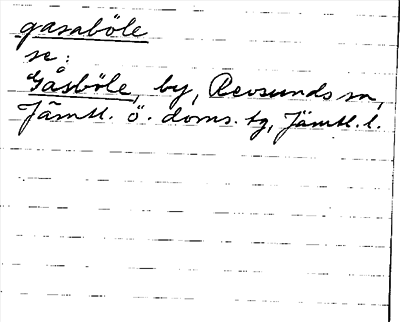 gasaböle
se:
Gåsböle, by, Revsunds sn,
Jämtl. ö. doms. tg, Jämtl. l.